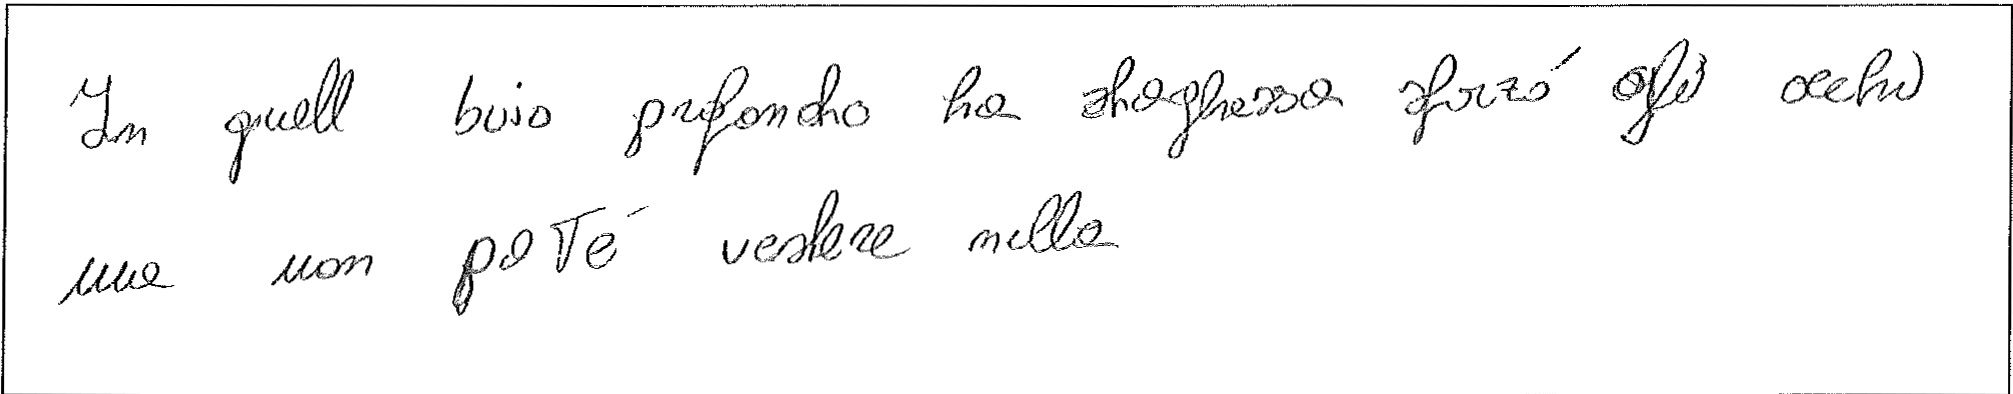 In quell buio profondo la sforzó gli occhi
ma non poté vedere nulla